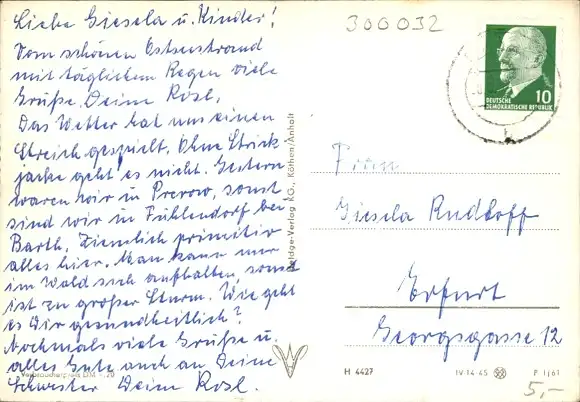 Liebe Giesela u. Kinder!
Vom schönen Ostseestrand
mit täglichem Regen viele
Grüße Deine Rosl.
Das Wetter hat uns einen
Streich gespielt. Ohne Strick-
jacke geht es nicht. Gestern
waren wir in Prerow, sonst
sind wir in Fuhlendorf bei
Barth. Ziemlich primitiv
alles hier. Man kann nur
im Wald sich aufhalten, sonst
ist zu großer Sturm. Wie geht
es Dir gesundheitlich?
Nochmals viele Grüße u.
alles Gute auch an Deine
Schwester Deine Rosl.
Verbraucherpreis DM -,20
Köthen/Anhalt
300032
10
DEUTSCHE
DEMOKRATISCHE REPUBLIK
Frau
Giesela Rudloff
Erfurt
Georgsgasse 12
H 4427
IV-14-45
P 1/61
5,-